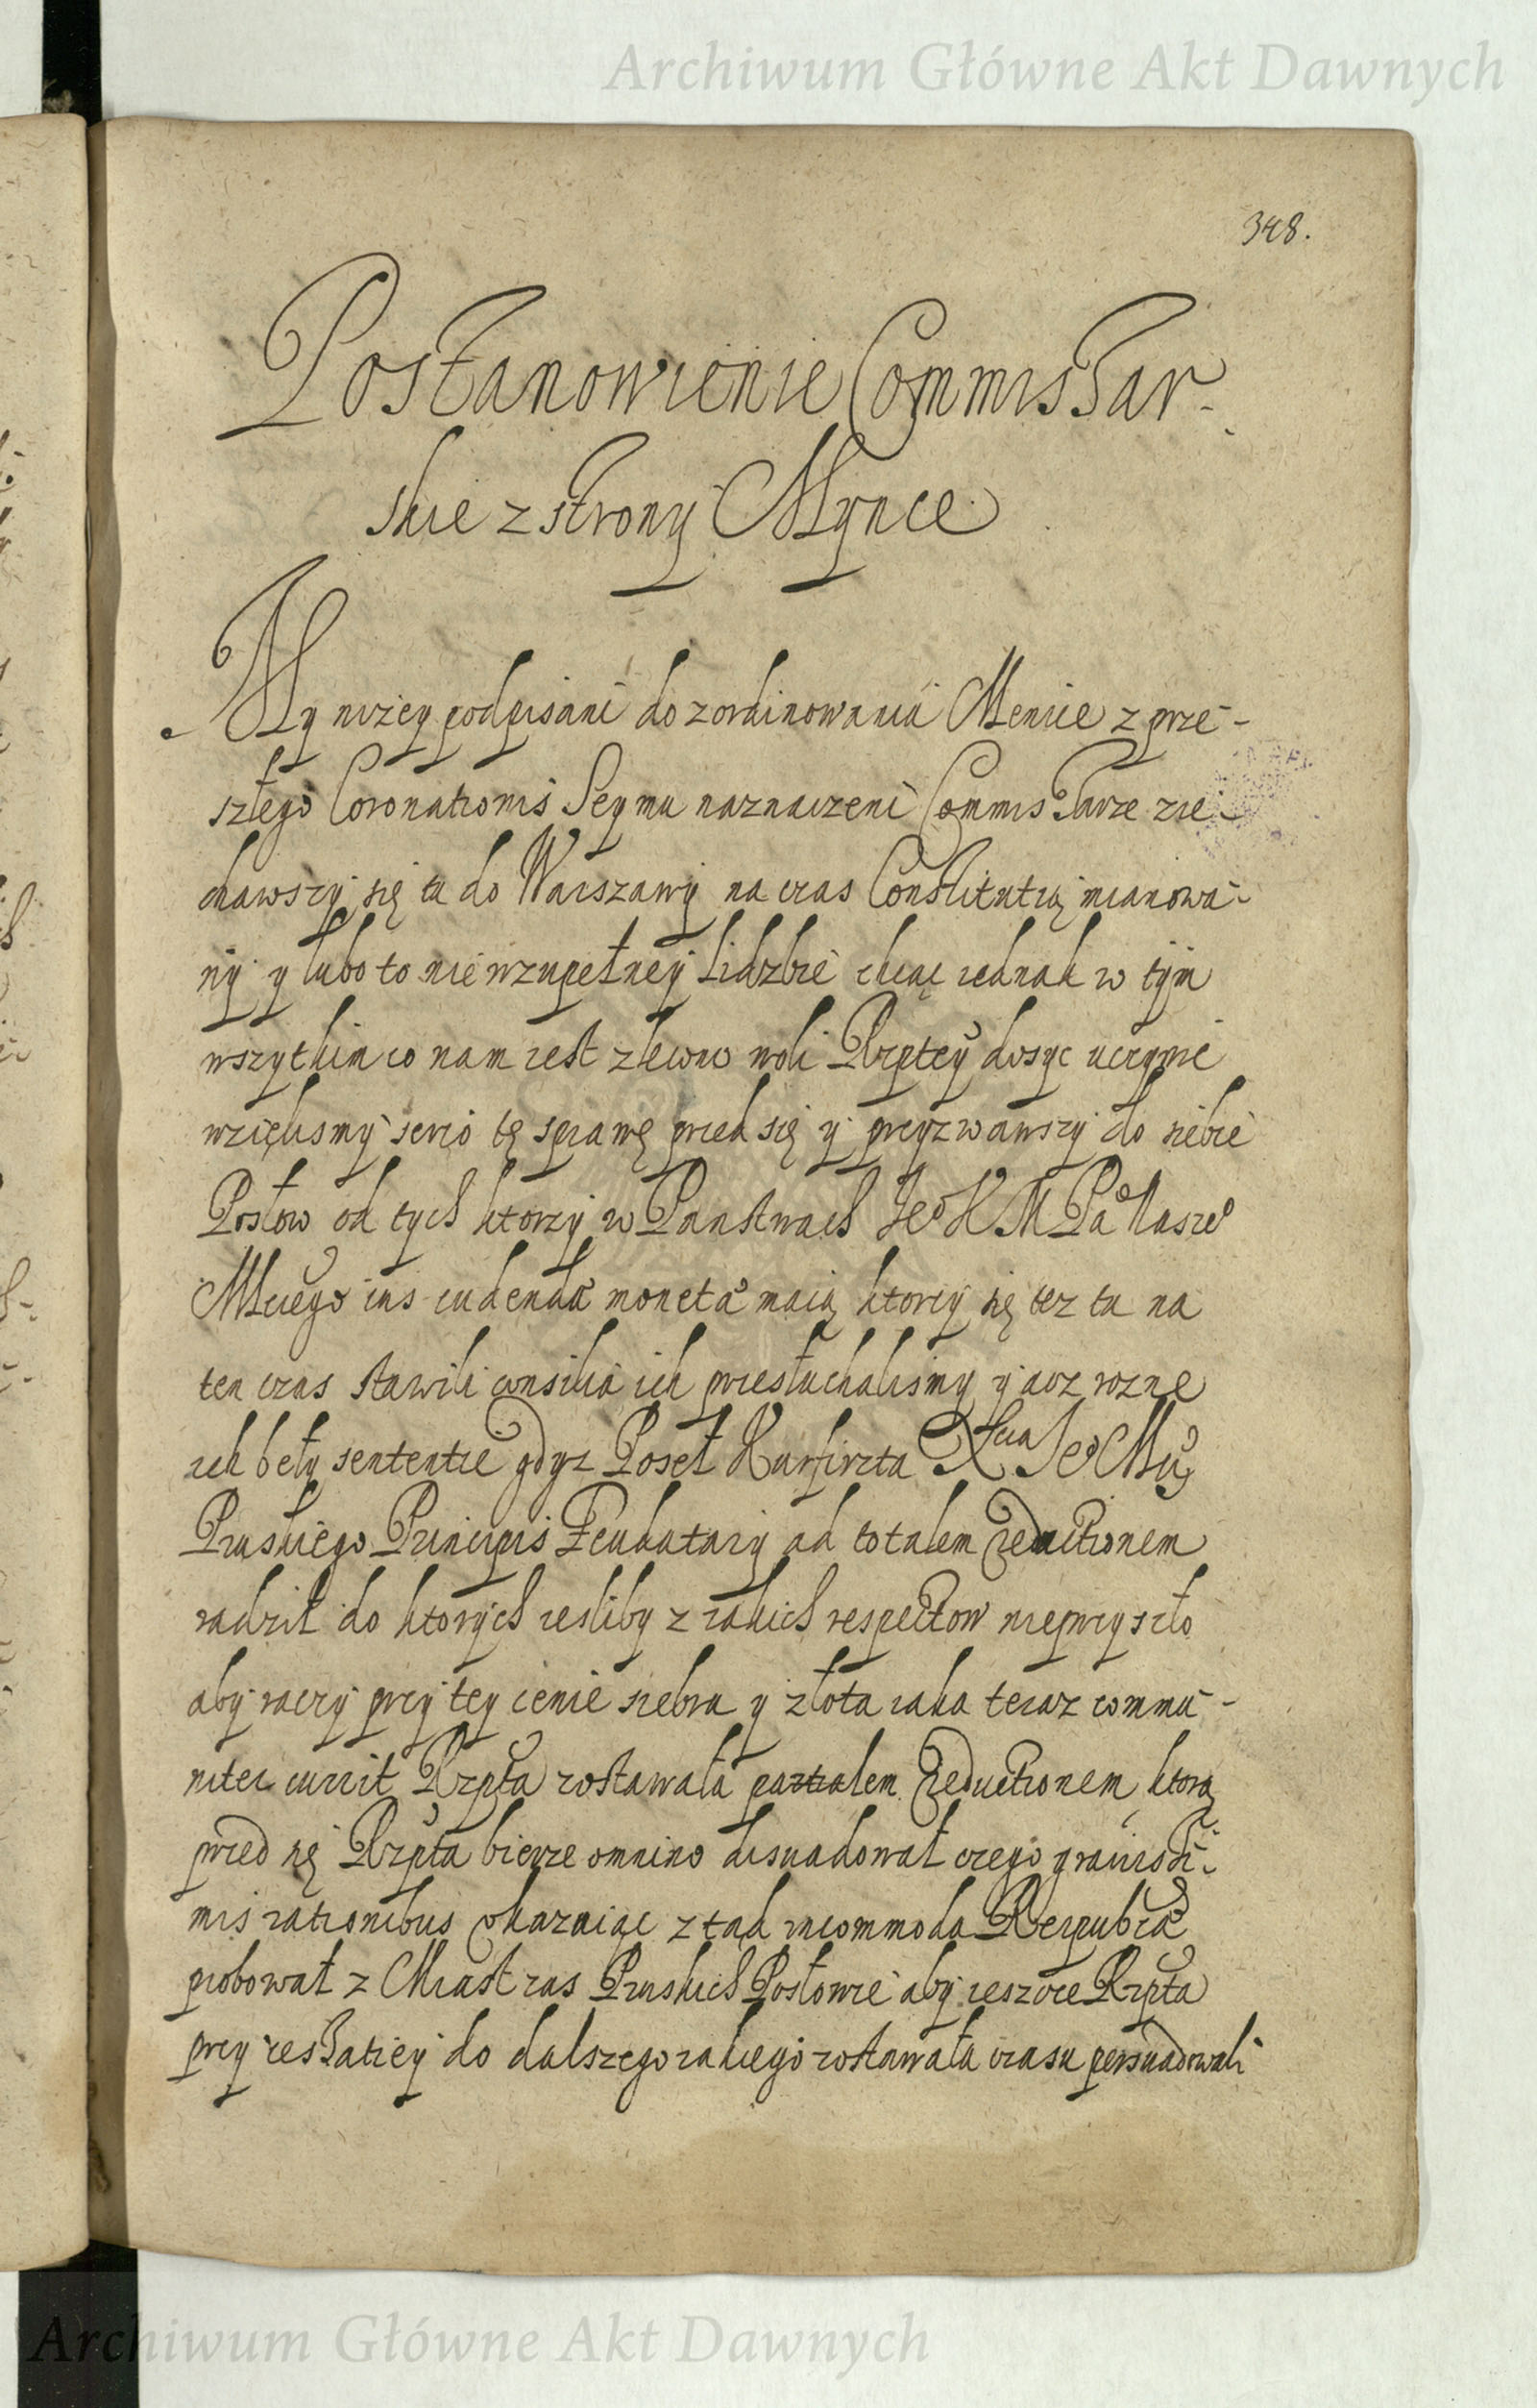 Archiwum Główne Akt Dawnych
348.
Postanowienie Commissar-
skie z strony Mynce
My niżey podpisani do zordinowania Menice z prze-
szłego Coronationis Seymu naznaczeni Commissarze zie-
chawszy się tu do Warszawy na czas Constitutią mianowa-
ny y lubo to nie w zupełney lidzbie chcąc iednak w tym
wszytkim co nam iest zlecono woli Rzptey dosyc uczynic
wzięlismy serio tę sprawę przed się y przyzwawszy do siebie
Posłow od tych ktorzy w Panstwach Jeo K M Pa Nasze
Mciego ius cudenda moneta maią ktorzy się tez tu na
ten czas stawili consilia ich przesłuchalismy y acz rozne
ich beły sententie gdyz Poseł Kurfirzta Xcia Jeo Mci
Pruskiego Principis Feudatarij ad totalem reductionem
radził do ktorych iesliby z iakich respectow nieprzyszło
aby raczy przy tey cenie srebra y złota iaka teraz commu-
niter currit Rzpta zostawała partialem reductionem ktorą
przed się Rzpta bierze omnino disuadował czego gravissi-
mis rationibus okazuiąc ztąd incommoda Reipubcae
probował z Miast zas Pruskich Posłowie aby ieszcze Rzpta
przy cessatiey do dalszego iakiego zostawała czasu persuadowali
Archiwum Główne Akt Dawnych